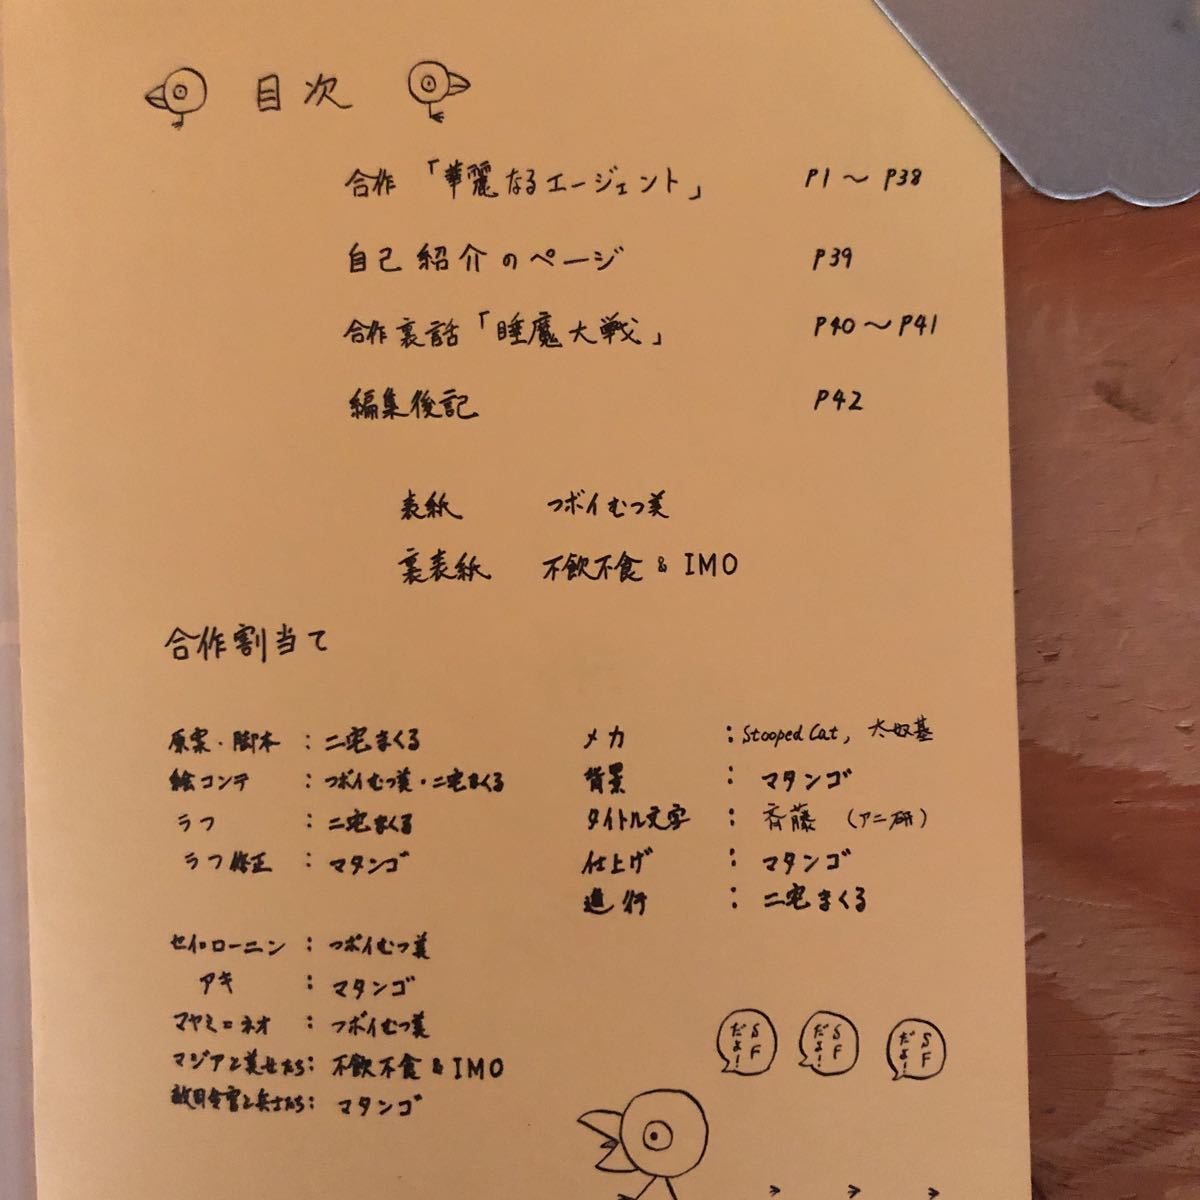 目次
合作「華麗なるエージェント」 P1〜P38
自己紹介のページ P39
合作裏話「睡魔大戦」 P40〜P41
編集後記 P42
表紙 つボイむつ美
裏表紙 不飲不食 & IMO
合作割当て
原案・脚本 : 二宅まくる
絵コンテ : つボイむつ美・二宅まくる
ラフ : 二宅まくる
ラフ修正 : マタンゴ
セイローニン : つボイむつ美
アキ : マタンゴ
マヤミ=ネオ : つボイむつ美
マジアと美女たち : 不飲不食 & IMO
敵司令官と兵士たち : マタンゴ
メカ : Stooped Cat, 太奴基
背景 : マタンゴ
タイトル文字 : 斉藤 (アニ研)
仕上げ : マタンゴ
進行 : 二宅まくる
SFだよ!
SFだよ!
SFだよ!